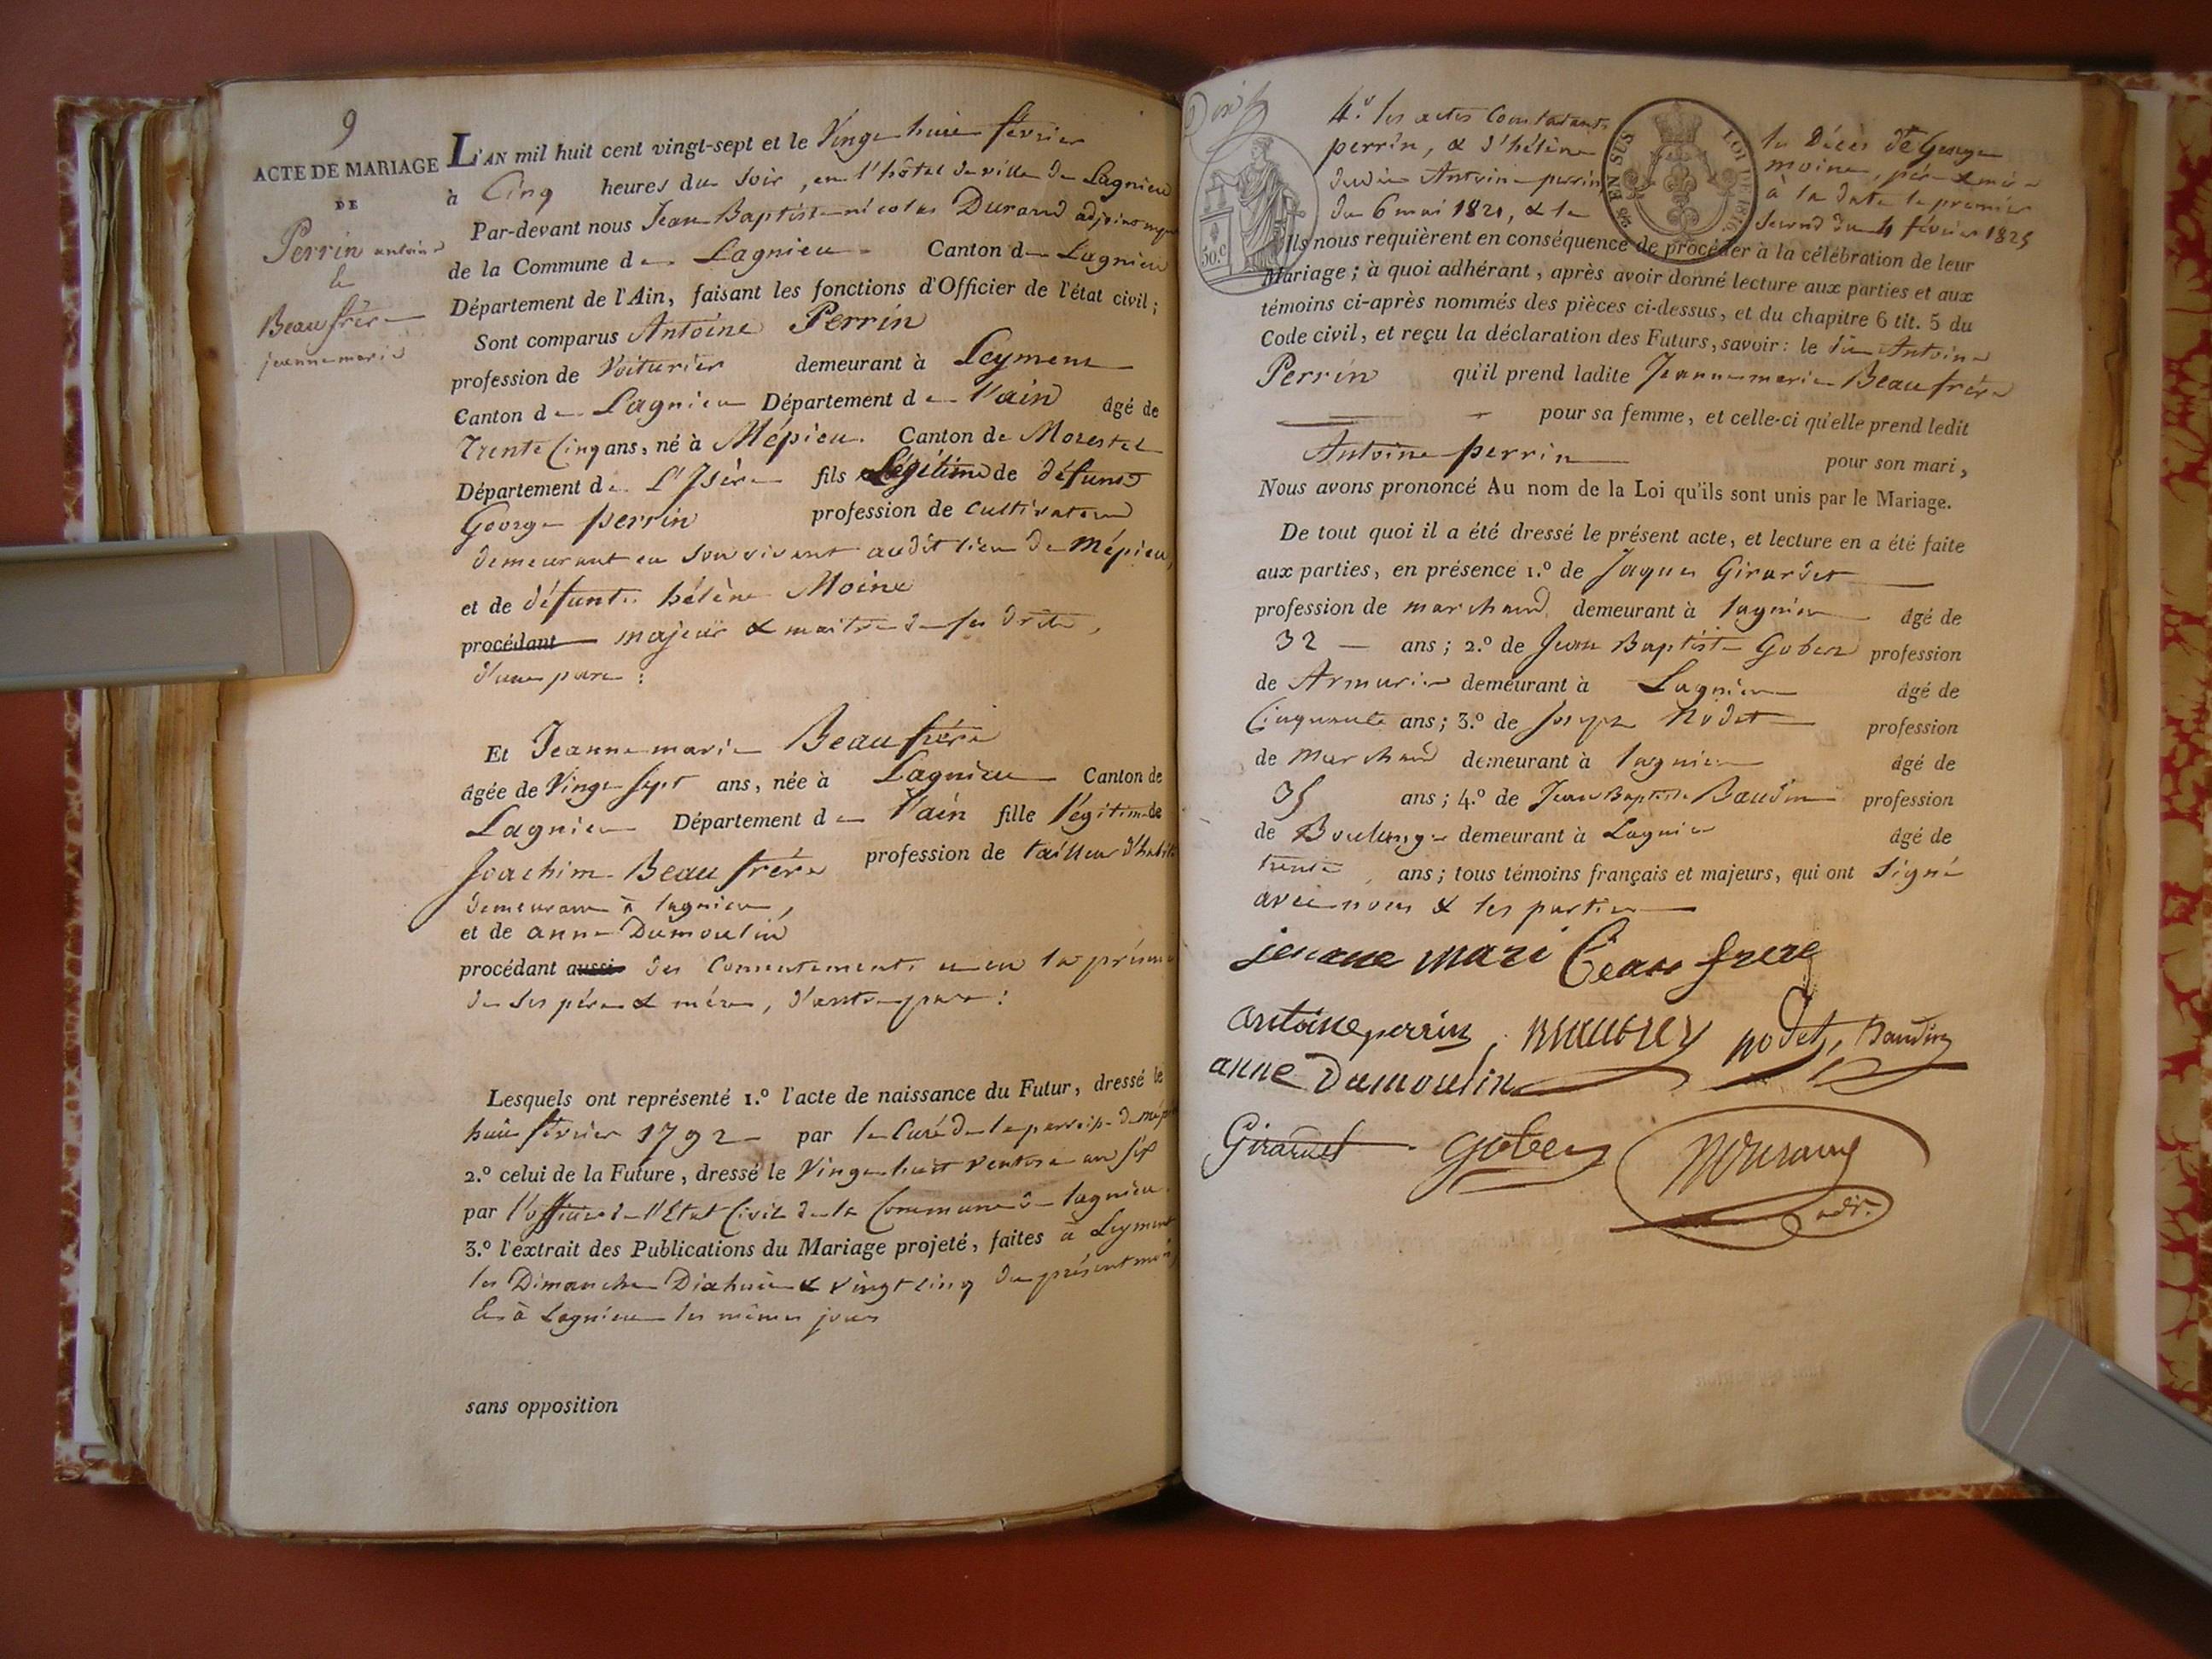 9
ACTE DE MARIAGE
DE
Perrin antoine
&
Beaufrère
jeanne marie
L'AN mil huit cent vingt-sept et le Vingt huit février
à Cinq heures du soir, en l'hôtel de ville de Lagnieu
Par-devant nous Jean Baptiste nicolas Durand adjoint
de la Commune de Lagnieu Canton de Lagnieu
Département de l'Ain, faisant les fonctions d'Officier de l'état civil;
Sont comparus Antoine Perrin
profession de Voiturier demeurant à Leyment
Canton de Lagnieu Département de l'ain âgé de
Trente Cinq ans, né à Mépieu. Canton de Morestel
Département de L'Isère fils Légitime de défunt
George perrin profession de cultivateur
demeurant en son vivant audit lieu de Mépieu,
et de défunte hélène Moine
procédant majeur & maitre de ses droits,
d'une part:
Et Jeanne marie Beaufrère
âgée de Vingt sept ans, née à Lagnieu Canton de
Lagnieu Département de l'ain fille légitime de
Joachim Beaufrère profession de tailleur d'habits
demeurant à lagnieu,
et de anne Dumoulin
procédant aussi des Consentements et en la présence
de ses père & mère, d'autre part:
Lesquels ont représenté 1.º l'acte de naissance du Futur, dressé le
huit février 1792 par le Curé de la parroisse de mépieu
2.º celui de la Future, dressé le Vingt huit Ventose an sept
par l'officier de l'Etat Civil de la Commune de lagnieu.
3.º l'extrait des Publications du Mariage projeté, faites à Leyment
les Dimanches Dixhuit & vingt cinq du présent mois,
Et à Lagnieu les mêmes jours
sans opposition
4.º les actes Constatants le Décès de George
perrin, & d'hélène moine, père & mère
dudit Antoine perrin à la date le premier
du 6 mai 1821, & le second du 4 février 1825
50.C
25 EN SUS LOI DE 1816.
Ils nous requièrent en conséquence de procéder à la célébration de leur
Mariage; à quoi adhérant, après avoir donné lecture aux parties et aux
témoins ci-après nommés des pièces ci-dessus, et du chapitre 6 tit. 5 du
Code civil, et reçu la déclaration des Futurs, savoir: le dit Antoine
Perrin qu'il prend ladite Jeanne marie Beaufrère
pour sa femme, et celle-ci qu'elle prend ledit
Antoine perrin pour son mari,
Nous avons prononcé Au nom de la Loi qu'ils sont unis par le Mariage.
De tout quoi il a été dressé le présent acte, et lecture en a été faite
aux parties, en présence 1.º de Jaques Girardet
profession de marchand demeurant à lagnieu âgé de
32 ans; 2.º de Jean Baptiste Gobert profession
de Armurier demeurant à Lagnieu âgé de
Cinquante ans; 3.º de Joseph Nodet profession
de Marchand demeurant à lagnieu âgé de
35 ans; 4.º de Jean Baptiste Baudin profession
de Boulanger demeurant à Lagnieu âgé de
trente ans; tous témoins français et majeurs, qui ont signé
avec nous & les parties
jeanne mari beau frere
antoine perrin nodet, Baudin
anne Dumoulin
Girardet Gobert
adj.